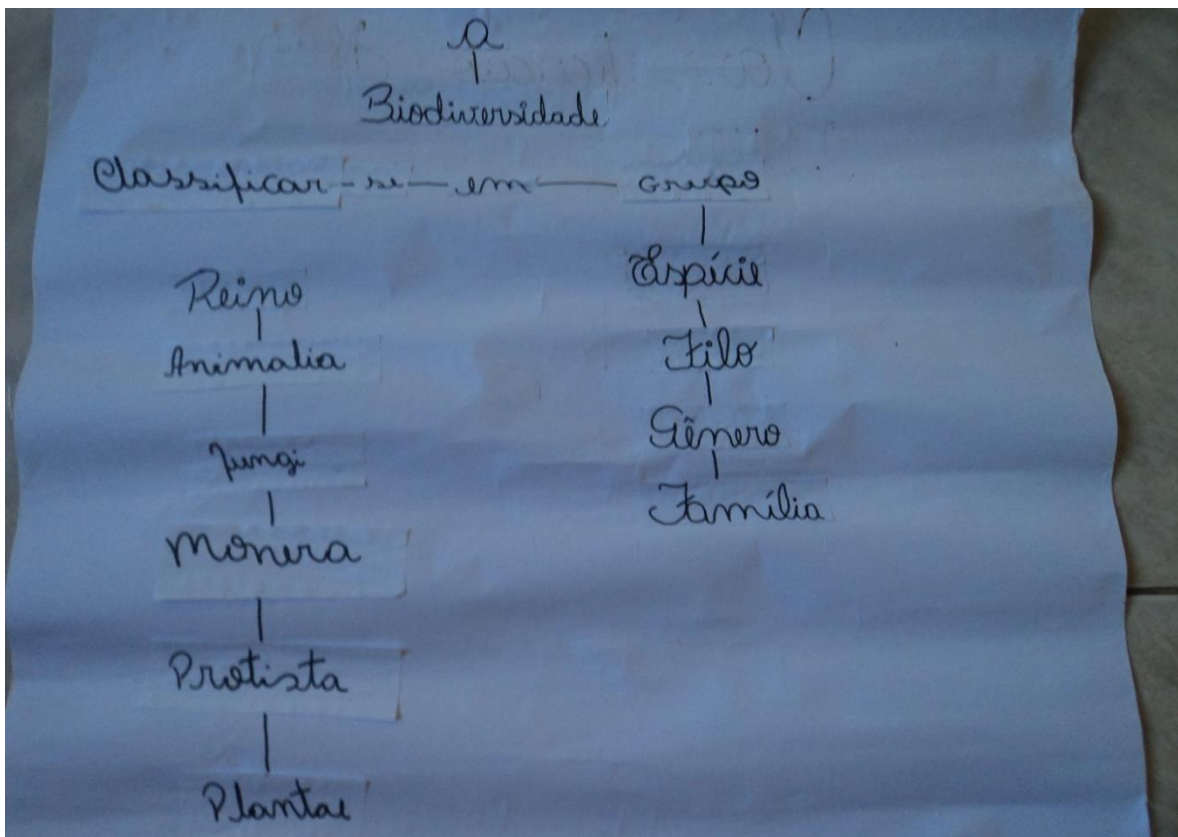 A
Biodiversidade
Classificar - se - em - Grupo
Reino
Animalia
Fungi
Monera
Protista
Plantae
Espécie
Filo
Gênero
Família